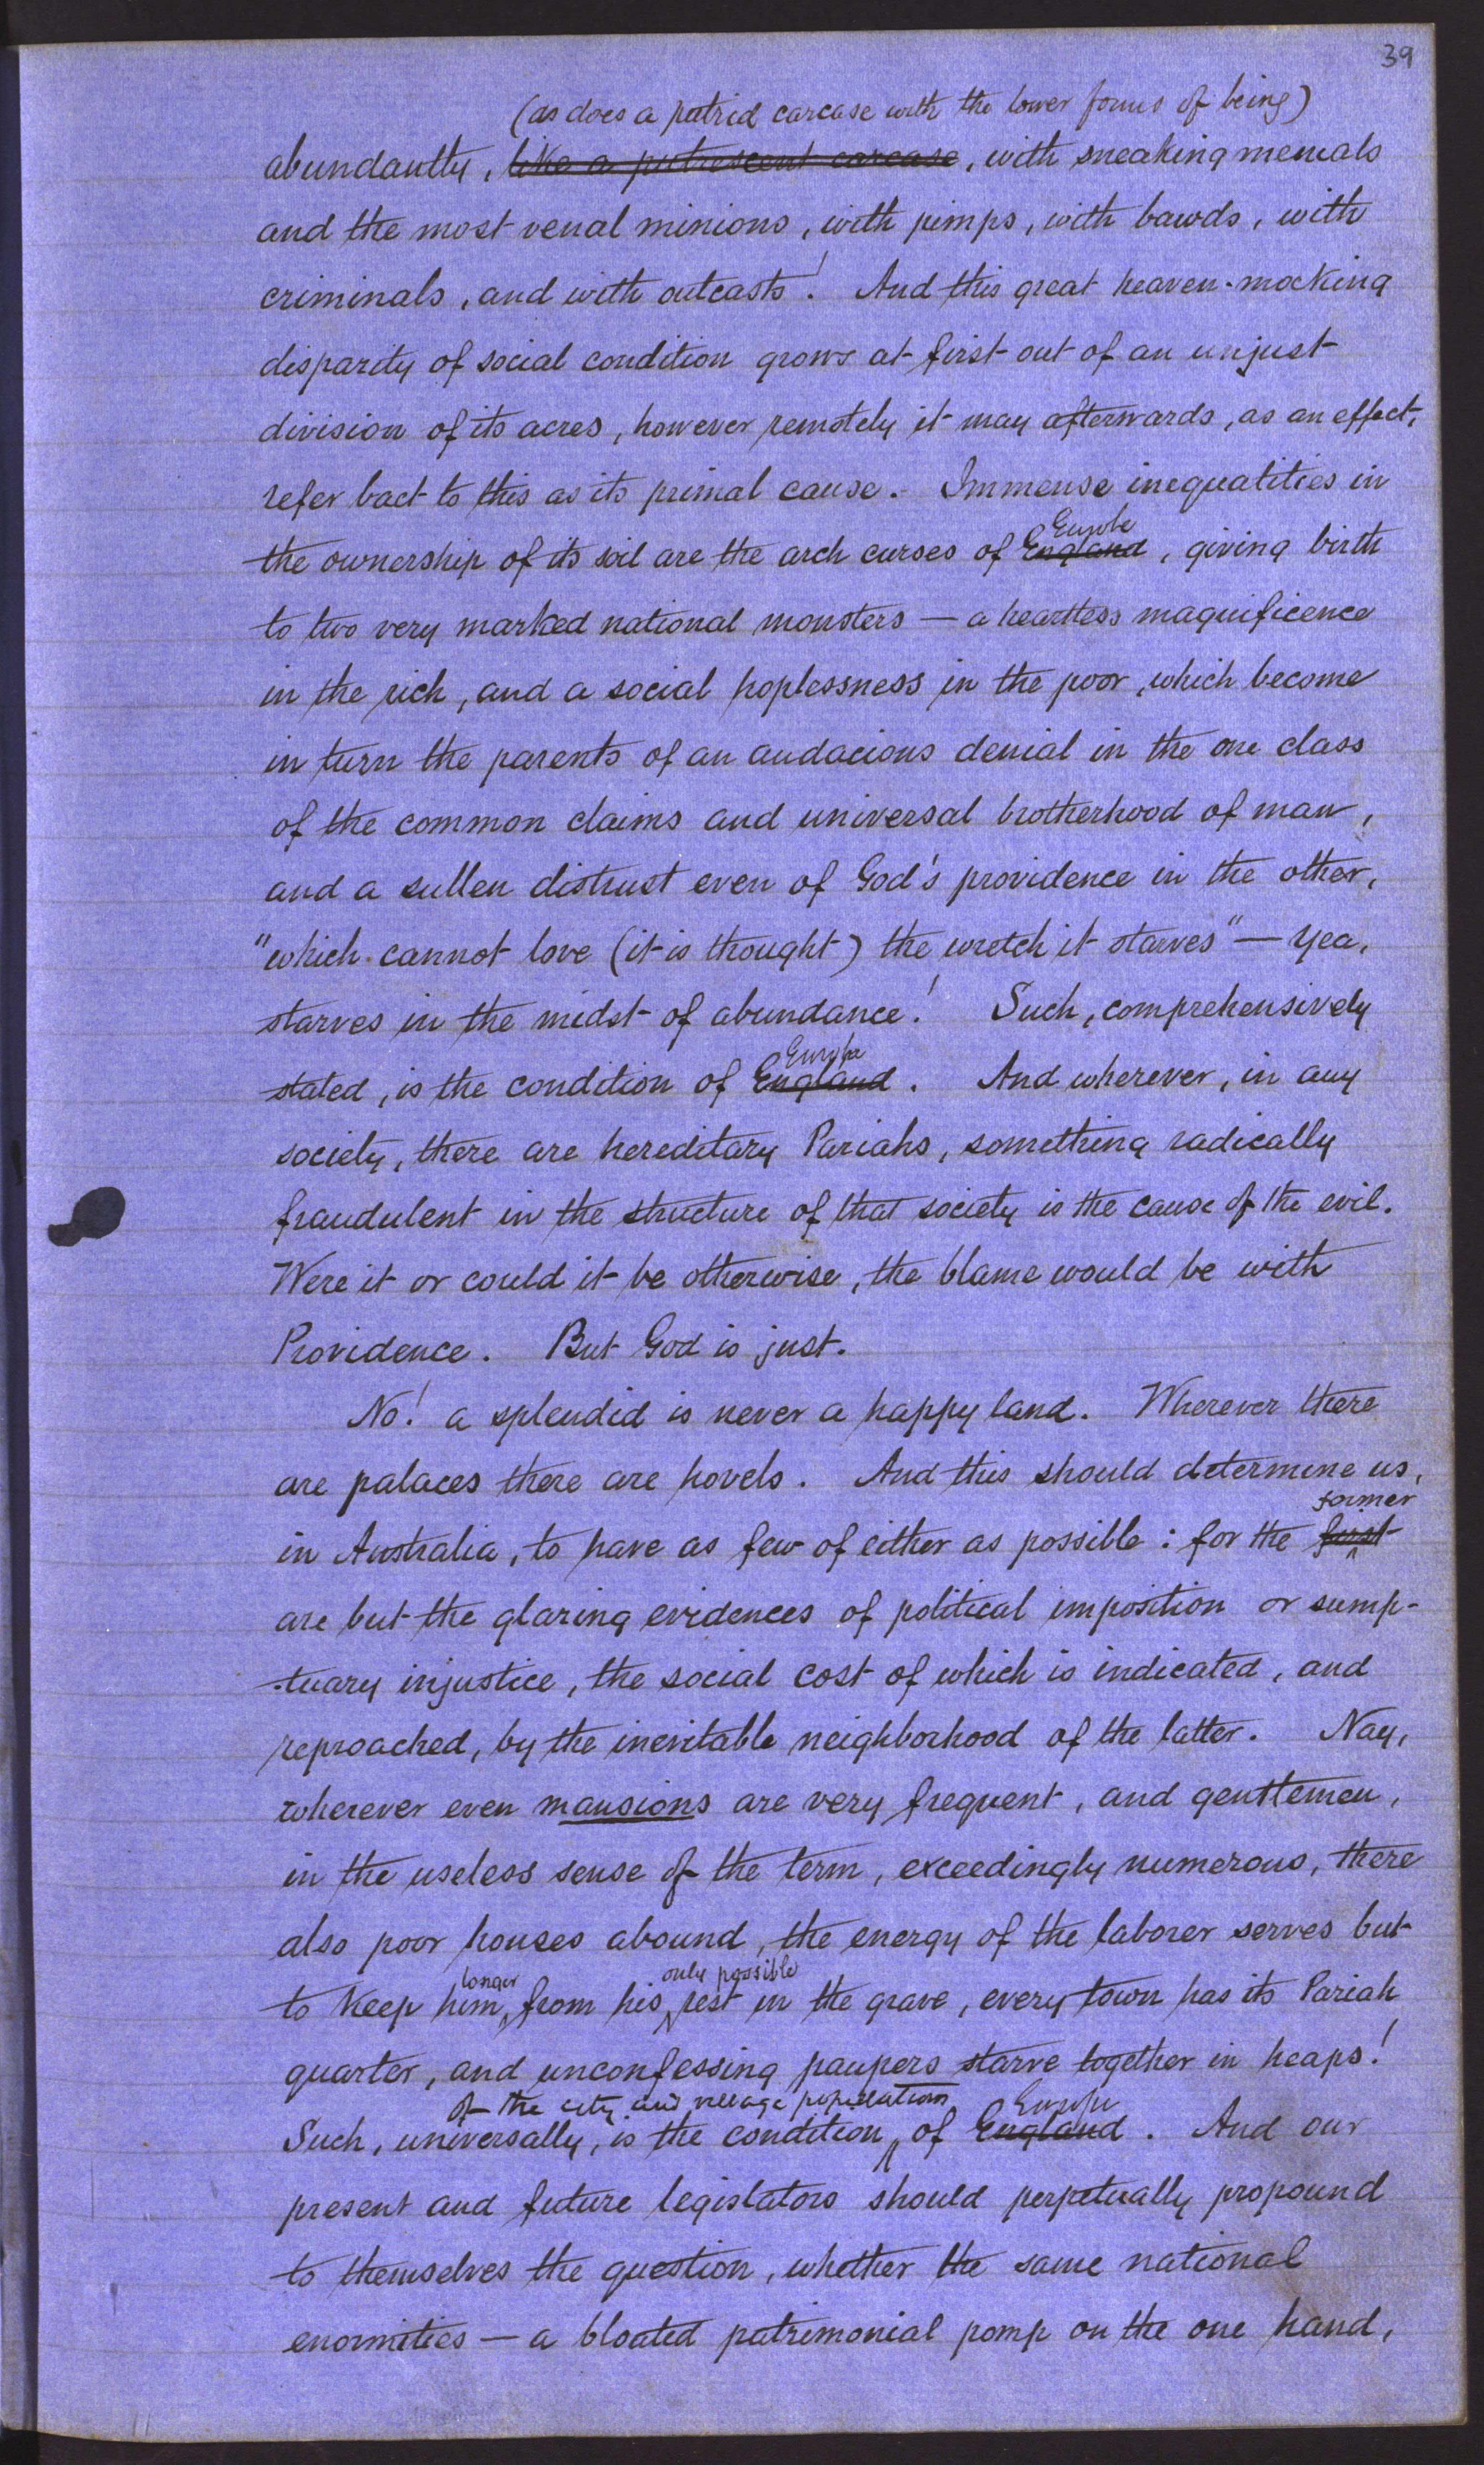 39
(as does a putrid carcase with the lower forms of being)
abundantly, like a putrescent carcase, with sneaking menials
and the most venal minions, with pimps, with bawds, with
criminals, and with outcasts! And this great heaven-mocking
disparity of social condition grows at first out of an unjust
division of its acres, however remotely it may afterwards, as an effect,
refer back to this as its primal cause. Immense inequalities in
Europe
the ownership of its soil are the arch curses of England, giving birth
to two very marked national monsters — a heartless magnificence
in the rich, and a social hoplessness in the poor, which become
in turn the parents of an audacious denial in the one class
of the common claims and universal brotherhood of man,
and a sullen distrust even of God's providence in the other,
"which cannot love (it is thought) the wretch it starves" — yea,
starves in the midst of abundance! Such, comprehensively
Europe
stated, is the condition of England. And wherever, in any
society, there are hereditary Pariahs, something radically
fraudulent in the structure of that society is the cause of the evil.
Were it or could it be otherwise, the blame would be with
Providence. But God is just.
No! a splendid is never a happy land. Wherever there
are palaces there are hovels. And this should determine us,
former
in Australia, to have as few of either as possible: for the first
are but the glaring evidences of political imposition or sump-
-tuary injustice, the social cost of which is indicated, and
reproached, by the inevitable neighborhood of the latter. Nay,
wherever even mansions are very frequent, and gentlemen,
in the useless sense of the term, exceedingly numerous, there
also poor houses abound, the energy of the laborer serves but
longer only possible
to keep him from his rest in the grave, every town has its Pariah
quarter, and unconfessing paupers starve together in heaps!
of the city and village population Europe
Such, universally, is the condition of England. And our
present and future legislators should perpetually propound
to themselves the question, whether the same national
enormities — a bloated patrimonial pomp on the one hand,